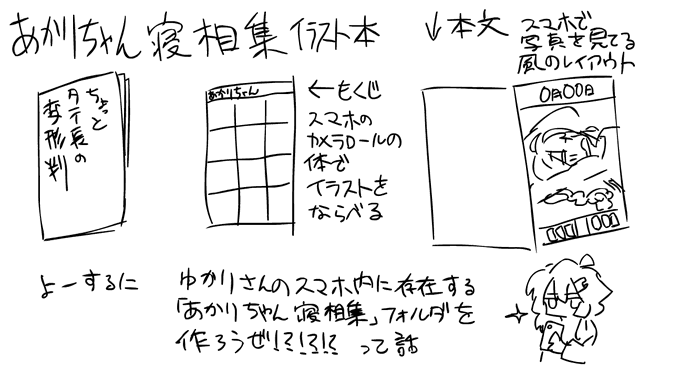 あかりちゃん寝相集 イラスト本
↓本文
スマホで
写真を見てる
風のレイアウト
ちょっと
タテ長の
変形判
あかりちゃん
←もくじ
スマホの
カメラロールの
体で
イラストを
ならべる
0月00日
よーするに
ゆかりさんのスマホ内に存在する
「あかりちゃん寝相集」フォルダを
作ろうぜ!?!?!? って話